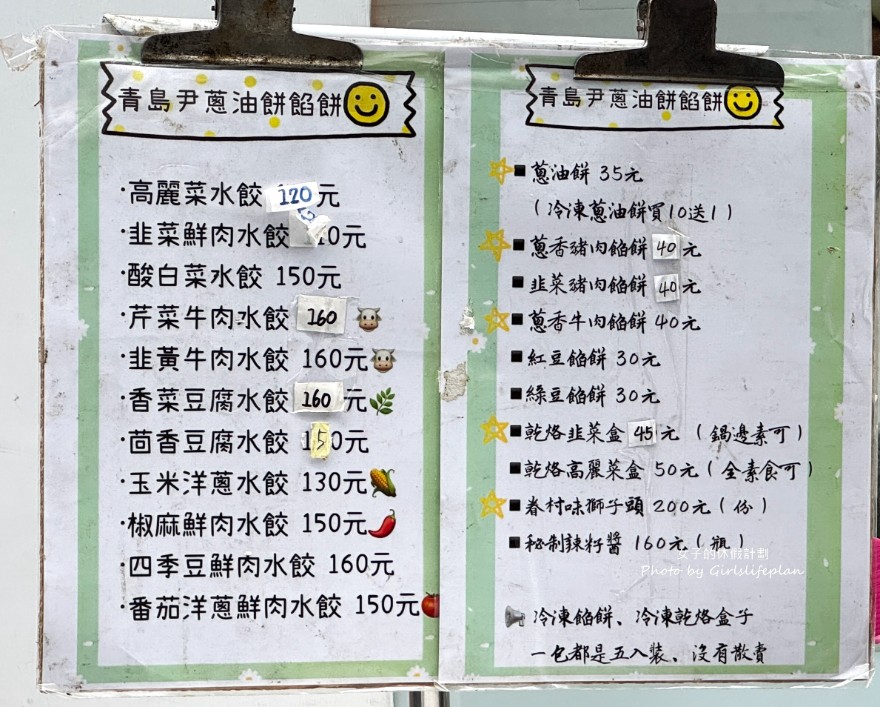 青島尹蔥油餅餡餅
·高麗菜水餃 120元
·韭菜鮮肉水餃 0元
·酸白菜水餃 150元
·芹菜牛肉水餃 160
·韭黃牛肉水餃 160元
·香菜豆腐水餃 160元
·茴香豆腐水餃 150元
·玉米洋蔥水餃 130元
·椒麻鮮肉水餃 150元
·四季豆鮮肉水餃 160元
·番茄洋蔥鮮肉水餃 150元
青島尹蔥油餅餡餅
■ 蔥油餅 35元
(冷凍蔥油餅買10送1)
■ 蔥香豬肉餡餅 40元
■ 韭菜豬肉餡餅 40元
■ 蔥香牛肉餡餅 40元
■ 紅豆餡餅 30元
■ 綠豆餡餅 30元
■ 乾烙韭菜盒 45元 (鍋邊素可)
■ 乾烙高麗菜盒 50元(全素食可)
■ 眷村味獅子頭 200元(份)
■ 秘制辣籽醬 160元(瓶)
女子的休假計劃
Photo by Girlslifeplan
冷凍餡餅、冷凍乾烙盒子
一包都是五入裝、沒有散賣